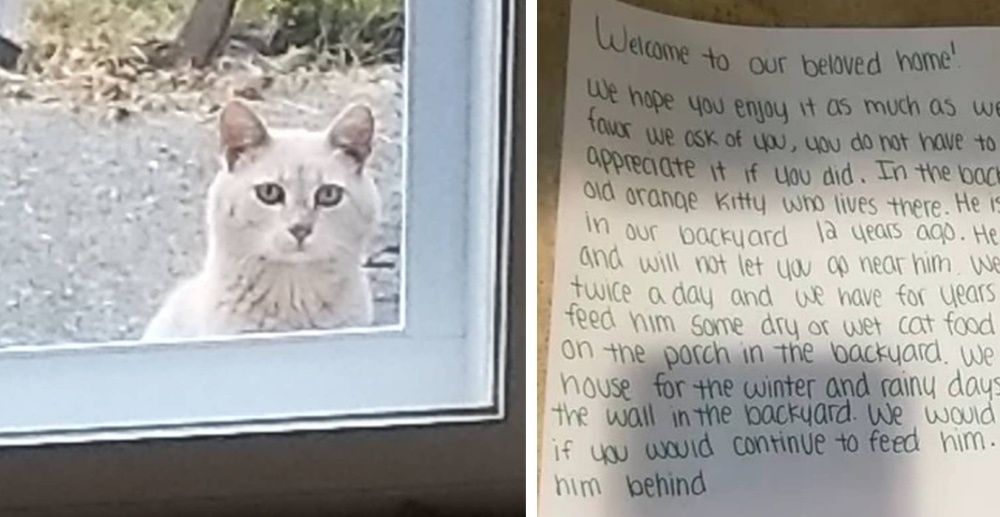 Welcome to our beloved home!
We hope you enjoy it as much as we
favor we ask of you, you do not have to
appreciate it if you did. In the back
old orange kitty who lives there. He is
in our backyard 12 years ago. He
and will not let you go near him. We
twice a day and we have for years
feed him some dry or wet cat food
on the porch in the backyard. We
house for the winter and rainy days
the wall in the backyard. We would
if you would continue to feed him.
him behind